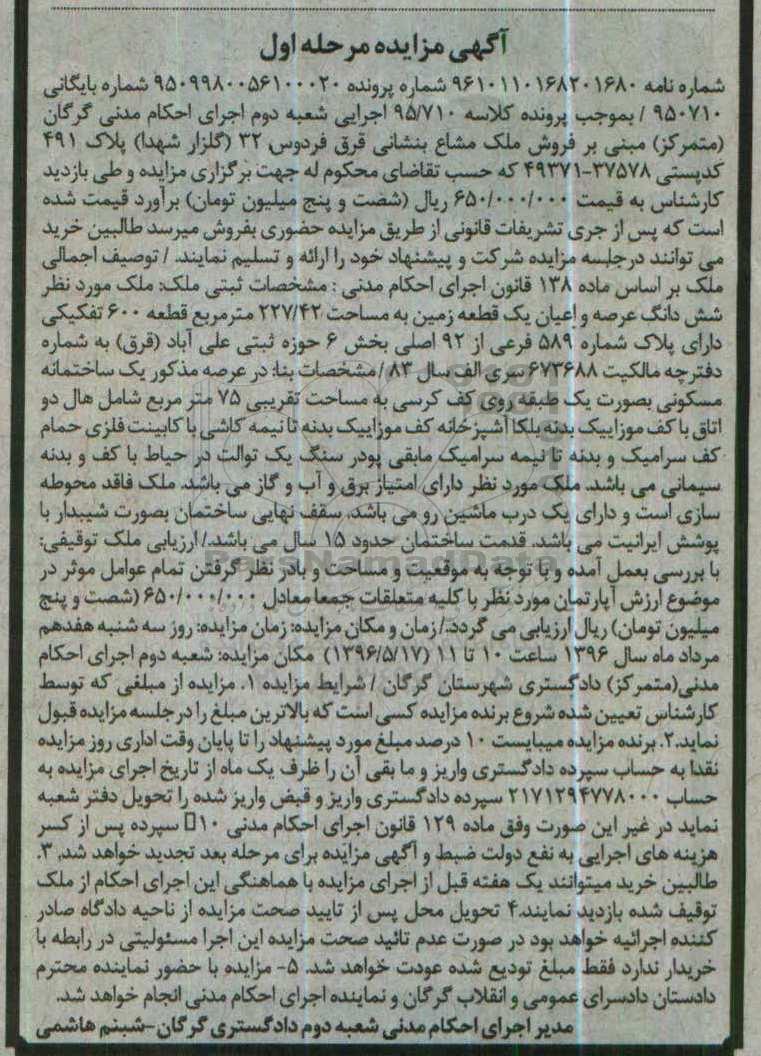 آگهی مزایده مرحله اول
شماره نامه ۹۶۱۰۱۱۰۱۶۸۲۰۱۶۸۰ شماره پرونده ۹۵۰۹۹۸۰۰۵۶۱۰۰۰۲۰ شماره بایگانی
۹۵۰۷۱۰ / بموجب پرونده کلاسه ۹۵/۷۱۰ اجرایی شعبه دوم اجرای احکام مدنی گرگان
(متمرکز) مبنی بر فروش ملک مشاع بنشانی قرق فردوس ۳۲ (گلزار شهدا) پلاک ۴۹۱
کدپستی ۳۷۵۷۸-۴۹۳۷۱ که حسب تقاضای محکوم له جهت برگزاری مزایده و طی بازدید
کارشناس به قیمت ۶۵۰/۰۰۰/۰۰۰ ریال (شصت و پنج میلیون تومان) برآورد قیمت شده
است که پس از جری تشریفات قانونی از طریق مزایده حضوری بفروش میرسد طالبین خرید
می توانند درجلسه مزایده شرکت و پیشنهاد خود را ارائه و تسلیم نمایند. / توصیف اجمالی
ملک بر اساس ماده ۱۳۸ قانون اجرای احکام مدنی : مشخصات ثبتی ملک: ملک مورد نظر
شش دانگ عرصه و اعیان یک قطعه زمین به مساحت ۲۲۷/۴۲ مترمربع قطعه ۶۰۰ تفکیکی
دارای پلاک شماره ۵۸۹ فرعی از ۹۲ اصلی بخش ۶ حوزه ثبتی علی آباد (قرق) به شماره
دفترچه مالکیت ۶۷۳۶۸۸ سری الف سال ۸۳ / مشخصات بنا: در عرصه مذکور یک ساختمانه
مسکونی بصورت یک طبقه روی کف کرسی به مساحت تقریبی ۷۵ متر مربع شامل هال دو
اتاق با کف موزاییک بدنه بلکا آشپزخانه کف موزاییک بدنه تا نیمه کاشی با کابینت فلزی حمام
کف سرامیک و بدنه تا نیمه سرامیک مابقی پودر سنگ یک توالت در حیاط با کف و بدنه
سیمانی می باشد. ملک مورد نظر دارای امتیاز برق و آب و گاز می باشد. ملک فاقد محوطه
سازی است و دارای یک درب ماشین رو می باشد، سقف نهایی ساختمان بصورت شیبدار با
پوشش ایرانیت می باشد. قدمت ساختمان حدود ۱۵ سال می باشد./ ارزیابی ملک توقیفی:
با بررسی بعمل آمده و با توجه به موقعیت و مساحت و بادر نظر گرفتن تمام عوامل موثر در
موضوع ارزش آپارتمان مورد نظر با کلیه متعلقات جمعا معادل ۶۵۰/۰۰۰/۰۰۰ (شصت و پنج
میلیون تومان) ریال ارزیابی می گردد./ زمان و مکان مزایده: زمان مزایده: روز سه شنبه هفدهم
مرداد ماه سال ۱۳۹۶ ساعت ۱۰ تا ۱۱ (۱۳۹۶/۵/۱۷) مکان مزایده: شعبه دوم اجرای احکام
مدنی(متمرکز) دادگستری شهرستان گرگان / شرایط مزایده ۱. مزایده از مبلغی که توسط
کارشناس تعیین شده شروع برنده مزایده کسی است که بالاترین مبلغ را در جلسه مزایده قبول
نماید.۲. برنده مزایده میبایست ۱۰ درصد مبلغ مورد پیشنهاد را تا پایان وقت اداری روز مزایده
نقدا به حساب سپرده دادگستری واریز و ما بقی آن را ظرف یک ماه از تاریخ اجرای مزایده به
حساب ۲۱۷۱۲۹۴۷۷۸۰۰۰ سپرده دادگستری واریز و قبض واریز شده را تحویل دفتر شعبه
نماید در غیر این صورت وفق ماده ۱۲۹ قانون اجرای احکام مدنی ۱۰□ سپرده پس از کسر
هزینه های اجرایی به نفع دولت ضبط و آگهی مزایده برای مرحله بعد تجدید خواهد شد. ۳.
طالبین خرید میتوانند یک هفته قبل از اجرای مزایده با هماهنگی این اجرای احکام از ملک
توقیف شده بازدید نمایند.۴ تحویل محل پس از تایید صحت مزایده از ناحیه دادگاه صادر
کننده اجرائیه خواهد بود در صورت عدم تائید صحت مزایده این اجرا مسئولیتی در رابطه با
خریدار ندارد فقط مبلغ تودیع شده عودت خواهد شد. ۵- مزایده با حضور نماینده محترم
دادستان دادسرای عمومی و انقلاب گرگان و نماینده اجرای احکام مدنی انجام خواهد شد.
مدیر اجرای احکام مدنی شعبه دوم دادگستری گرگان-شبنم هاشمی
ParsNamadData